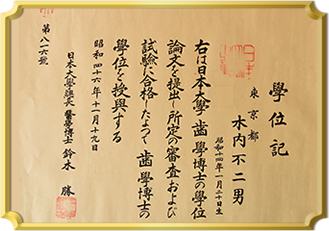 學位記
東京都
木内不二男
昭和十四年一月二十日生
右は日本大學歯學博士の學位
論文を提出し所定の審査および
試驗に合格したよつて歯學博士の
學位を授與する
昭和四十六年十一月十九日
日本大學總長醫學博士鈴木勝
第八一六號